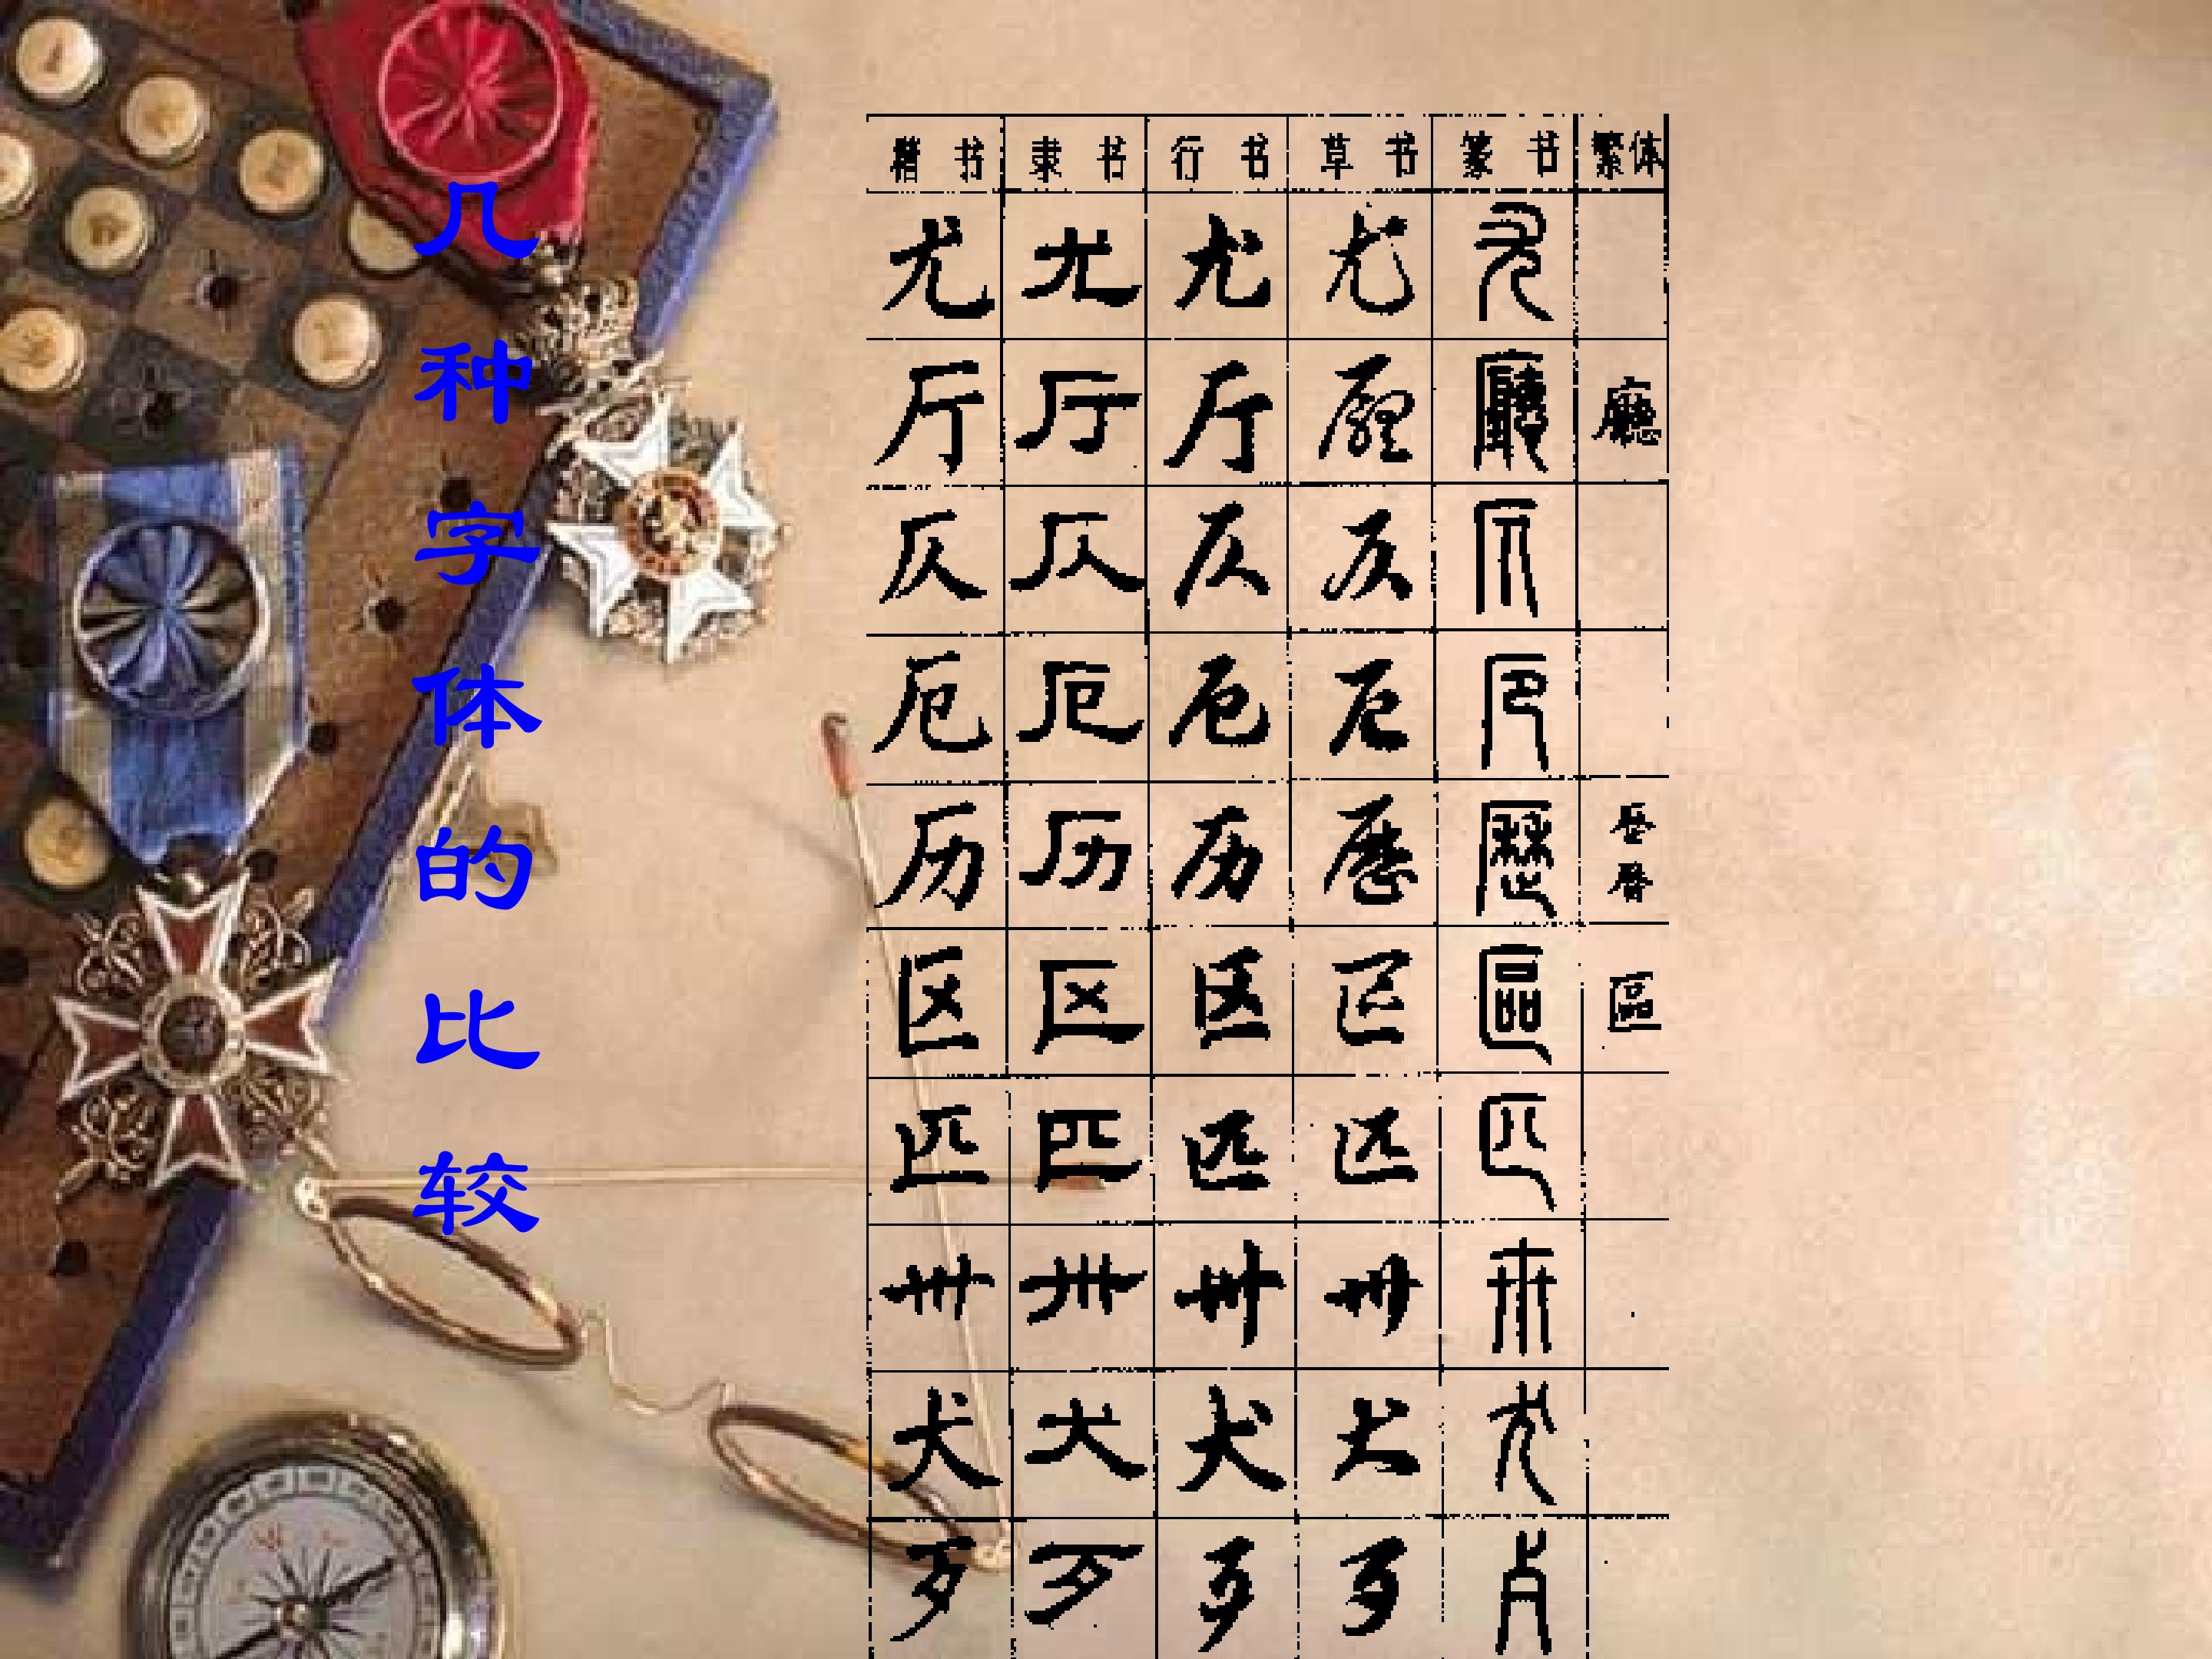 几种字体的比较
楷书 隶书 行书 草书 篆书 繁体
尤 尤 尤 尤 尤
厅 厅 厅 廳 廳 廳
仄 仄 仄 仄 仄
厄 厄 厄 厄 厄
历 历 历 歷 歷 歷 曆
区 区 区 区 區 區
匹 匹 匹 匹 匹
卅 卅 卅 卅 卅
犬 犬 犬 犬 犬
歹 歹 歹 歹 歹